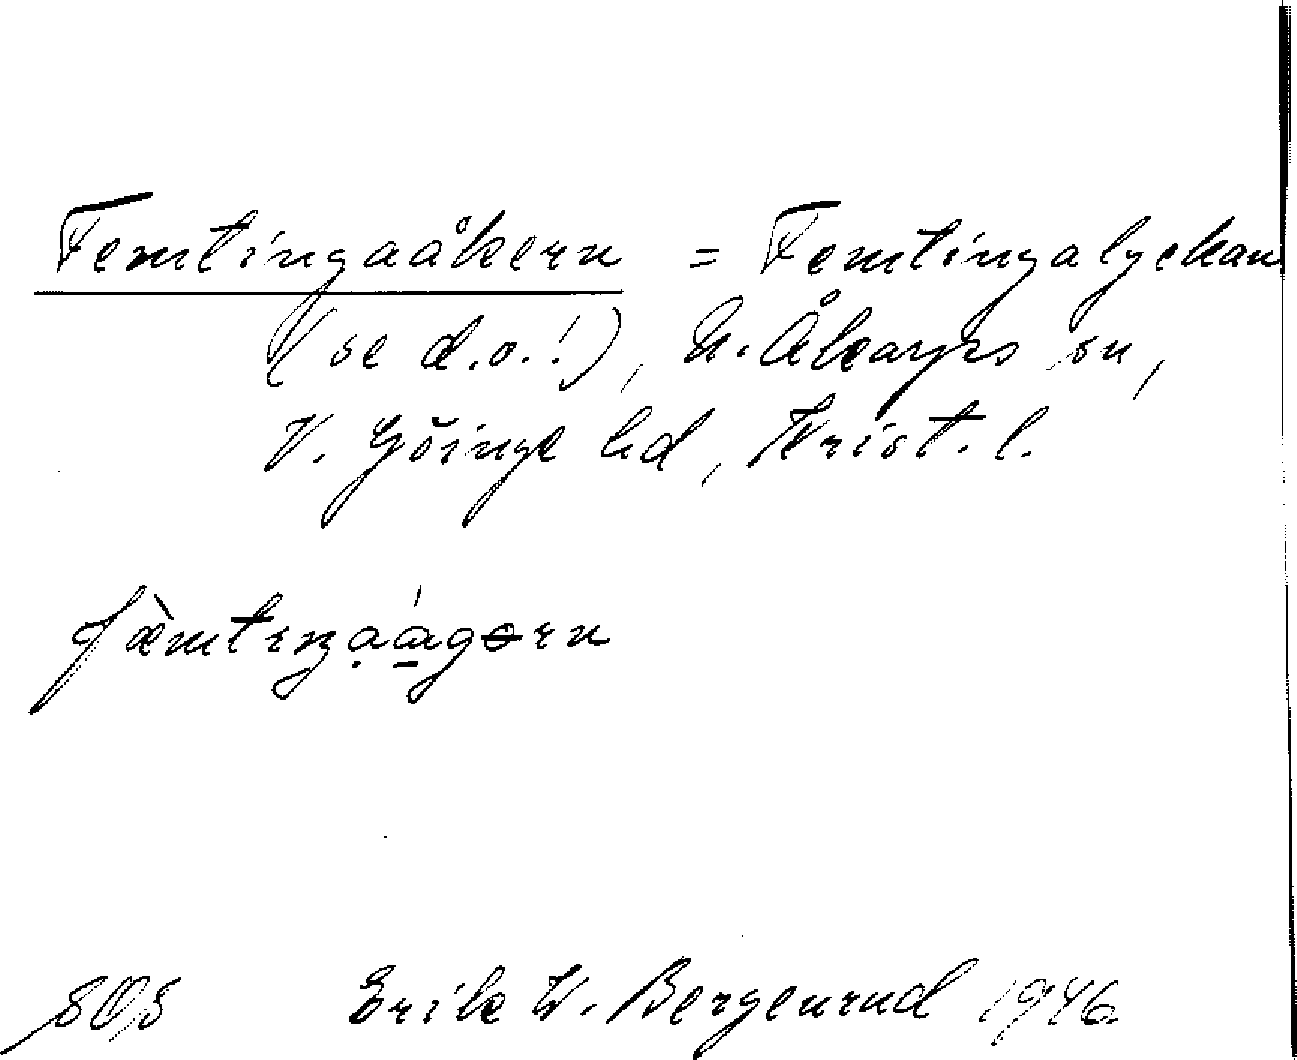 Femtingaåkern = Femtingalyckan
(se d.o.!), N. Åkarps sn,
V. Göinge hd, Krist. l.
fæ̀mtıŋạá̱gərn
Erik W. Bergenrud 1946